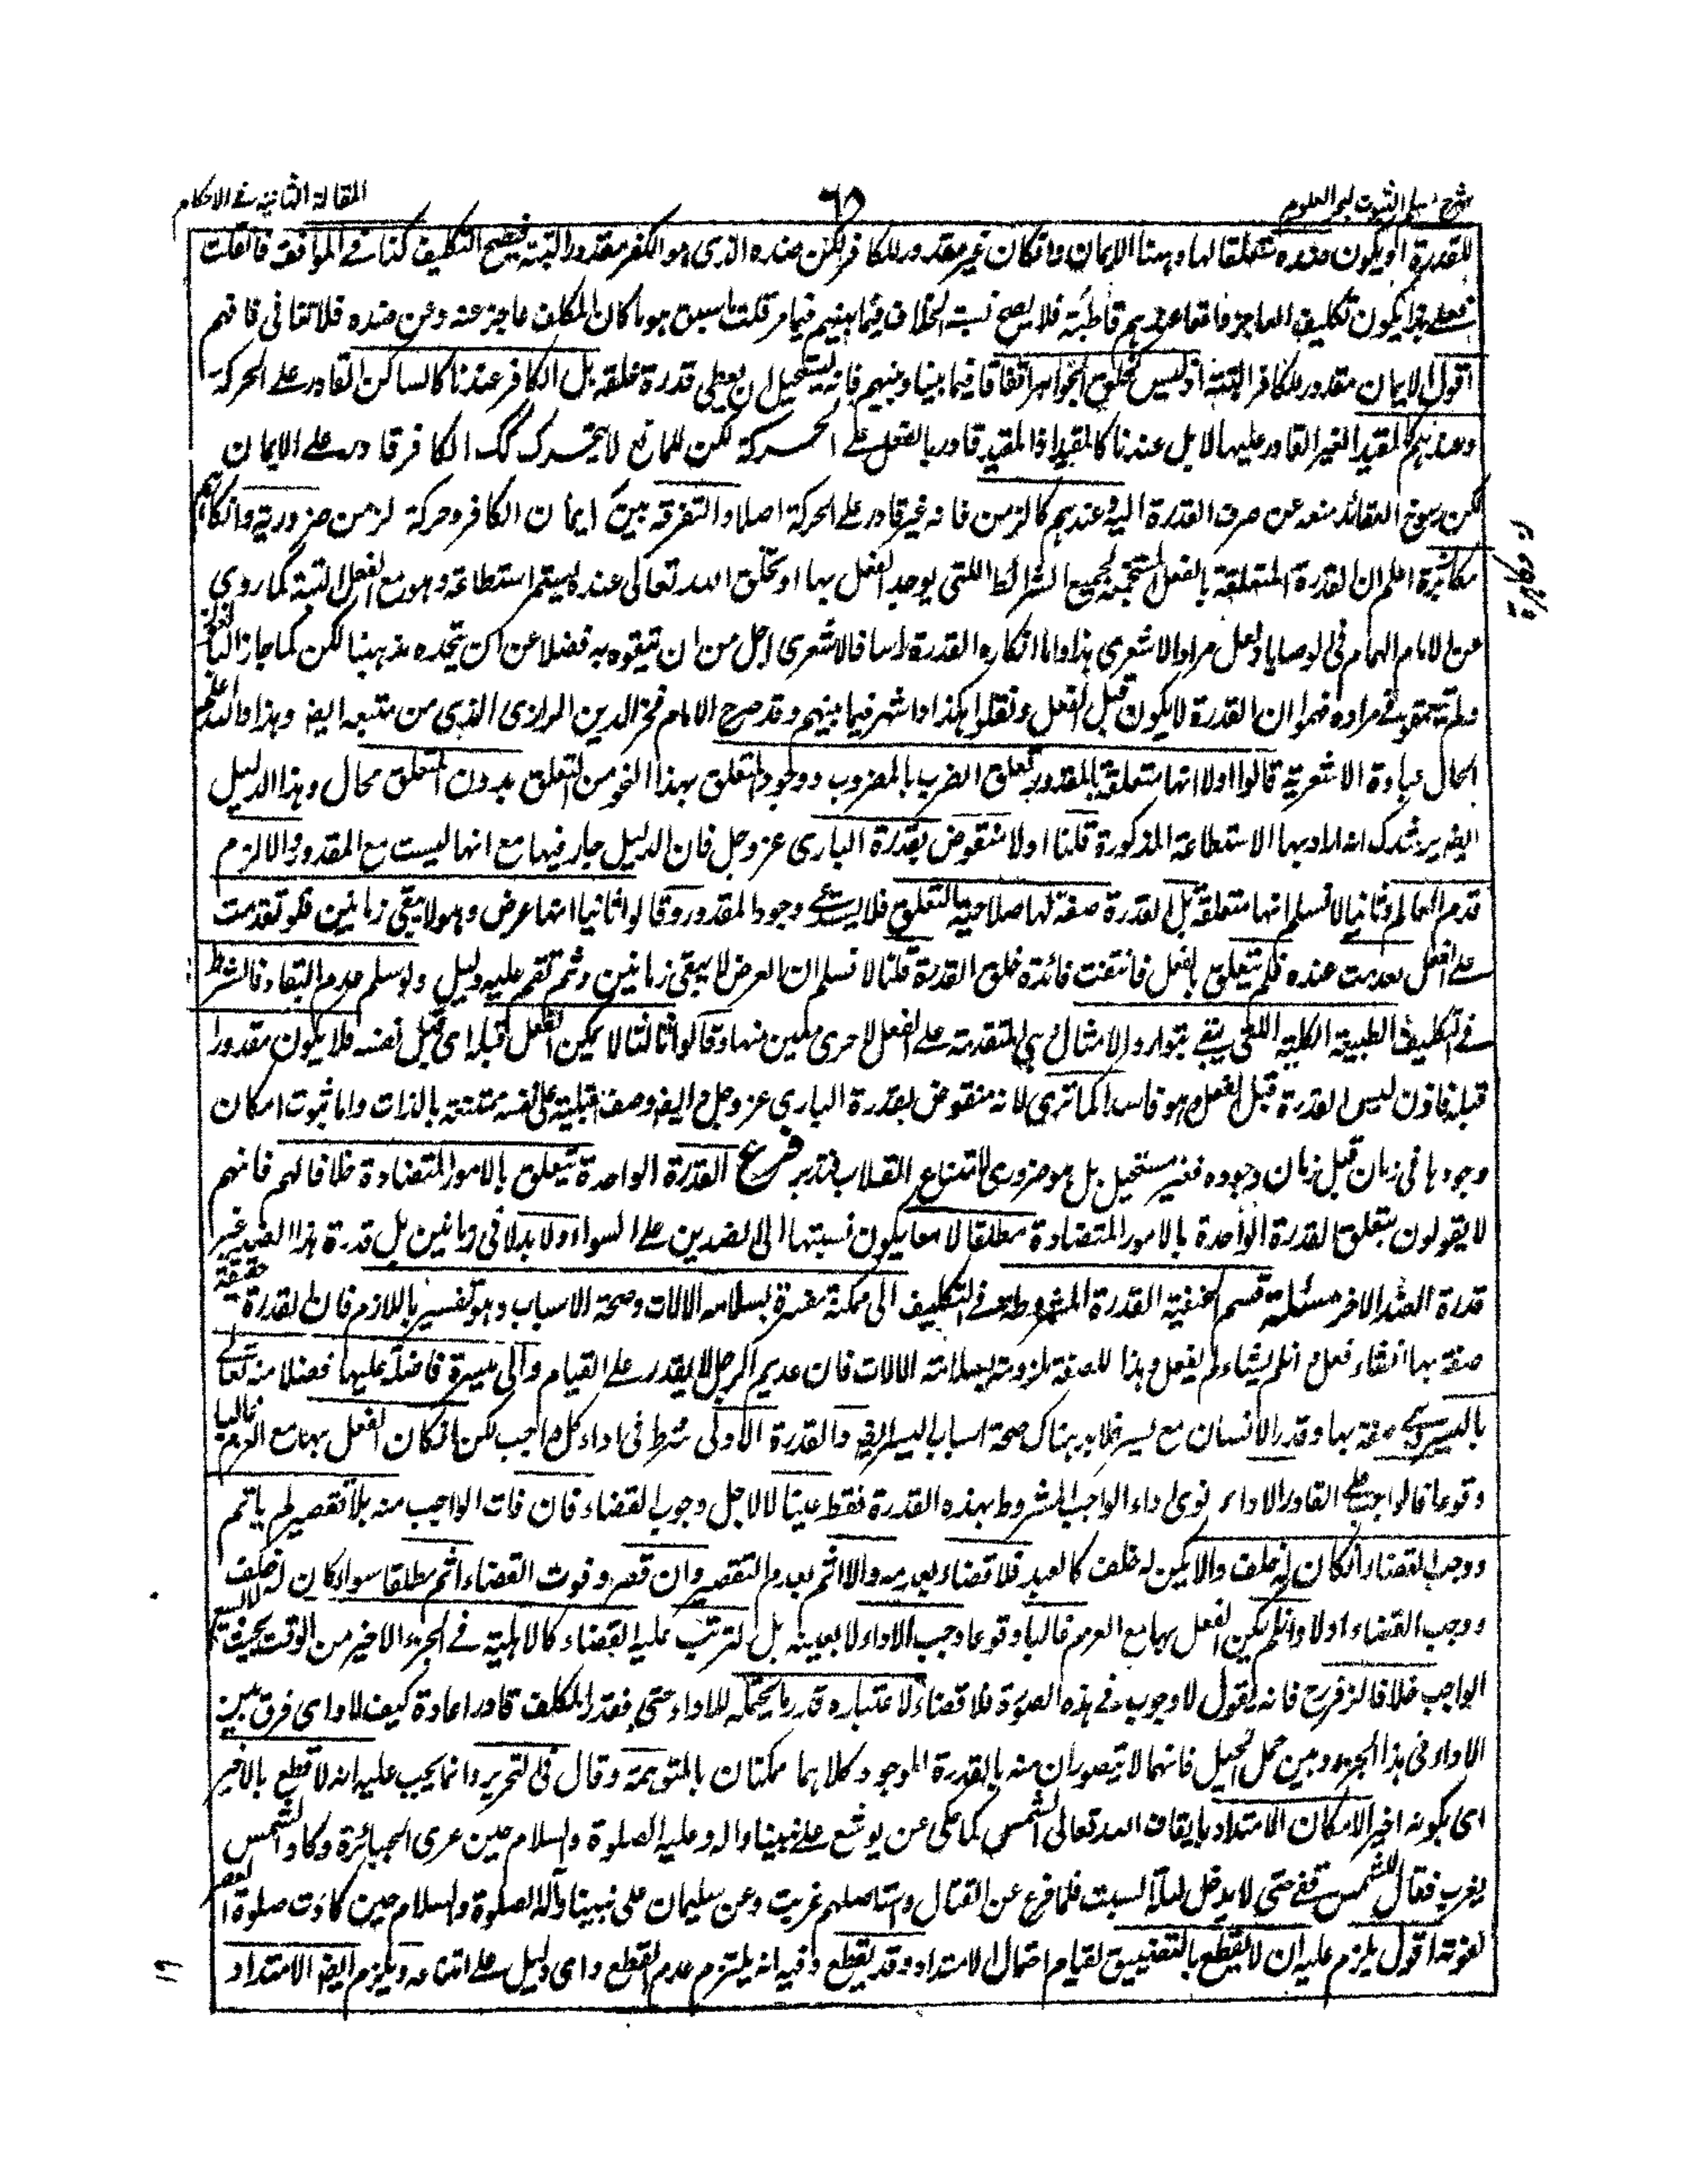 شرح مسلم الثبوت لبحر العلوم
٦٥
المقالة الثانية في الاحكام
للقدرة او يكون ضده متعلقا لها وههنا الايمان وان كان غير مقدور للكافر لكن ضده الذي هو الكفر مقدور البتة فيصح التكليف كذا في المواقف فان قلت
فعلى هذا يكون تكليف العاجز واقعا عندهم قاطبة فلا يصح نسبة الخلاف فيما بينهم فيما مر قلت ما سبق هو ما كان المكلف عاجز عنه وعن ضده فلا تنافي فافهم
اقول الايمان مقدور للكافر البتة اذ ليس كخلق الجواهر اتفاقا فيما بيننا وبينهم فانه يستحيل ان يعطى قدرة خلقه بل الكافر عندنا كالساكن القادر على الحركة
وعندهم كالمقيد الغير القادر عليها لا بل عندنا كالمقيد اذ المقيد قادر بالفعل على الحركة لكن للمانع لا يتحرك كك الكافر قادر على الايمان
لكن رسوخ العقائد منعه عن صرف القدرة اليه وعندهم كالزمن فانه غير قادر على الحركة اصلا والتفرقة بين ايمان الكافر وحركة الزمن ضرورية وانكارهم
مكابرة اعلم ان القدرة المتعلقة بالفعل المستجمعة لجميع الشرائط اللتي يوجد الفعل بها او يخلق الله تعالى عنده يسمى استطاعة وهو مع الفعل البتة كما روي
عن الامام الهمام في الوصايا ولعل مراد الاشعري هذا واما انكاره القدرة راسا فالاشعري اجل من ان يتفوه به فضلا عن ان يتخذه مذهبا لكن لما جاز التابعون
ولم يتعمقوا في مراده فهموا ان القدرة لا يكون قبل الفعل ونقلوا هكذا واشتهر فيما بينهم وقد صرح الامام فخر الدين الرازي الذي من متبعيه ايضا وهذا والله اعلم
الحال عبادة الاشعرية قالوا اولا انها متعلقة بالمقدور كتعلق الضرب بالمضروب ووجود المتعلق بهذا النحو من التعلق بدون المتعلق محال وهذا الدليل
ايضا يرشدك انه اراد بها الاستطاعة المذكورة قلنا اولا منقوض بقدرة الباري عز وجل فان الدليل جار فيها مع انها ليست مع المقدور والا لزم
قدم العالم وثانيا لا نسلم انها متعلقة بل القدرة صفة لها صلاحية التعلق فلا يستدعي وجود المقدور وقالوا ثانيا انها عرض وهو لا يبقى زمانين فلو تقدمت
على الفعل لعدمت عنده فلم يتعلق بالفعل فانتفت فائدة خلق القدرة قلنا لا نسلم ان العرض لا يبقى زمانين وثم لم يقم عليه دليل ولو سلم عدم البقاء فالشرط
في التكليف الطبيعة الكلية اللتي يبقى بتوارد الامثال هي المتقدمة على الفعل لا جزئي معين منها وقالوا ثالثا لا يمكن الفعل قبله اي قبل نفسه فلا يكون مقدورا
قبله فاذن ليس القدرة قبل الفعل وهو فاسد كما ترى لانه منقوض بقدرة الباري عز وجل وايضا وصف قبليته على نفسه ممتنعة بالذات واما ثبوت امكان
وجودها في زمان قبل زمان وجوده فغير مستحيل بل هو ضروري لامتناع الانقلاب فتدبر فرع القدرة الواحدة تتعلق بالامور المتضادة خلافا لهم فانهم
لا يقولون بتعلق القدرة الواحدة بالامور المتضادة مطلقا لا معا يكون نسبتها الى الضدين على السواء ولا بدلا في زمانين بل قدرة هذا الضد غير
قدرة الضد الاخر مسئلة قسم الحنفية القدرة المشروطة في التكليف الى ممكنة مفسرة بسلامة الالات وصحة الاسباب وهو تفسير باللازم فان القدرة حقيقة
صفة بها ان شاء فعل وان لم يشاء لم يفعل وهذا للصفة ملزومة بسلامة الالات فان عديم الرجل لا يقدر على القيام والى ميسرة فاضلة عليها فضلا منه تعالى
باليسر وهي صفة بها وقدر الانسان مع يسر فلابد هناك صحة اسباب اليسر ايضا والقدرة الاولى شرط في اداء كل واجب لكن ان كان الفعل بها مع العزم غالبا
وقوعا فالواجب على القادر الاداء نوى اداء الواجب المشروط بهذه القدرة فقط عينا لا لاجل وجوب القضاء فان فات الواجب منه بلا تقصير لم ياثم
ووجب القضاء ان كان له خلف والا يكن له خلف كالعيد فلا قضاء بعدمه والا اثم بعدم التقصير وان قصر وفوت القضاء اثم مطلقا سواء كان له خلف
ووجب القضاء اولا وان لم يكن الفعل بها مع العزم غالبا وقوعا وجب الاداء لا بعينه بل لترتب عليه القضاء كالاهلية في الجزء الاخير من الوقت بحيث لا يسع
الواجب خلافا لزفر فانه يقول لا وجوب في هذه الصورة فلا قضاء لاعتباره قدر ما يحتمله للاداء حتى فقد المكلف قادرا عادة كيف لا واي فرق بين
الاداء في هذا الجزء وبين حمل الجبل فانهما لا يتصوران منه بالقدرة الموجودة كلاهما ممكنان بالمتوهمة وقال في التحرير وانما يجب عليه لانه لا قطع بالاخير
اي بكونه اخيرا لامكان الامتداد بايقاف الله تعالى الشمس كما حكي عن يوشع على نبينا وآله وعليه الصلوة والسلام حين غزى الجبابرة وكاد الشمس
يغرب فقال للشمس قفي حتى لا يدخل ليلة السبت فلما فرغ عن القتال واستاصلهم غربت وعن سليمان على نبينا وآله الصلوة والسلام حين كادت صلوة العصر
لفوته اقول يلزم عليه ان لا يقطع بالتضييق لقيام احتمال الامتداد وقد يقطع وفيه انه يلتزم عدم القطع واي دليل على امتناعه ويلزم ايضا الامتداد